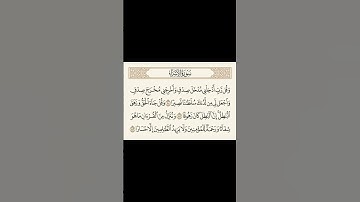 سُورَةُ الإِسْرَاءِ
وَقُل رَّبِّ أَدْخِلْنِي مُدْخَلَ صِدْقٍ وَأَخْرِجْنِي مُخْرَجَ صِدْقٍ
وَاجْعَل لِّي مِن لَّدُنكَ سُلْطَانًا نَّصِيرًا ۝ وَقُلْ جَاءَ الْحَقُّ وَزَهَقَ
الْبَاطِلُ إِنَّ الْبَاطِلَ كَانَ زَهُوقًا ۝ وَنُنَزِّلُ مِنَ الْقُرْءَانِ مَا هُوَ
شِفَاءٌ وَرَحْمَةٌ لِّلْمُؤْمِنِينَ وَلَا يَزِيدُ الظَّالِمِينَ إِلَّا خَسَارًا ۝